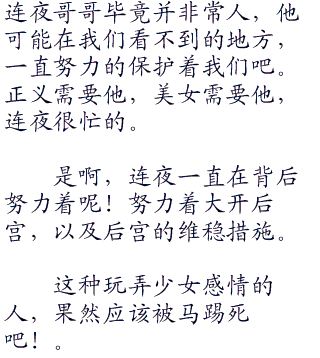 连夜哥哥毕竟并非常人，他
可能在我们看不到的地方，
一直努力的保护着我们吧。
正义需要他，美女需要他，
连夜很忙的。
是啊，连夜一直在背后
努力着呢！努力着大开后
宫，以及后宫的维稳措施。
这种玩弄少女感情的
人，果然应该被马踢死
吧！。